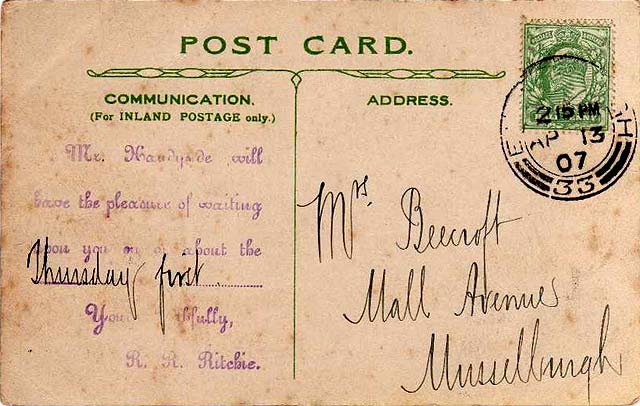 POST CARD.
COMMUNICATION.
(For INLAND POSTAGE only.)
Mr. Handyside will
have the pleasure of waiting
upon you on or about the
Thursday first.
You fully,
R. R. Ritchie.
ADDRESS.
Mrs. Beecroft
Mall Avenue
Musselburgh
2 15 PM
AP 13
07
33